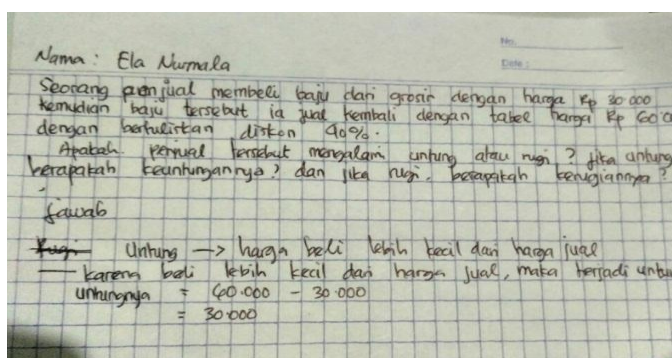 No.
Date :
Nama : Ela Nurmala
Seorang penjual membeli baju dari grosir dengan harga Rp 30.000
kemudian baju tersebut ia jual kembali dengan tabel harga Rp 60.0
dengan bertuliskan diskon 40%.
Apakah penjual tersebut mengalami untung atau rugi ? jika untung
berapakah keuntungannya? dan jika rugi, berapakah kerugiannya?
Jawab
Rugi Untung → harga beli lebih kecil dari harga jual
karena beli lebih kecil dari harga jual, maka terjadi untu
untungnya = 60.000 - 30.000
= 30.000